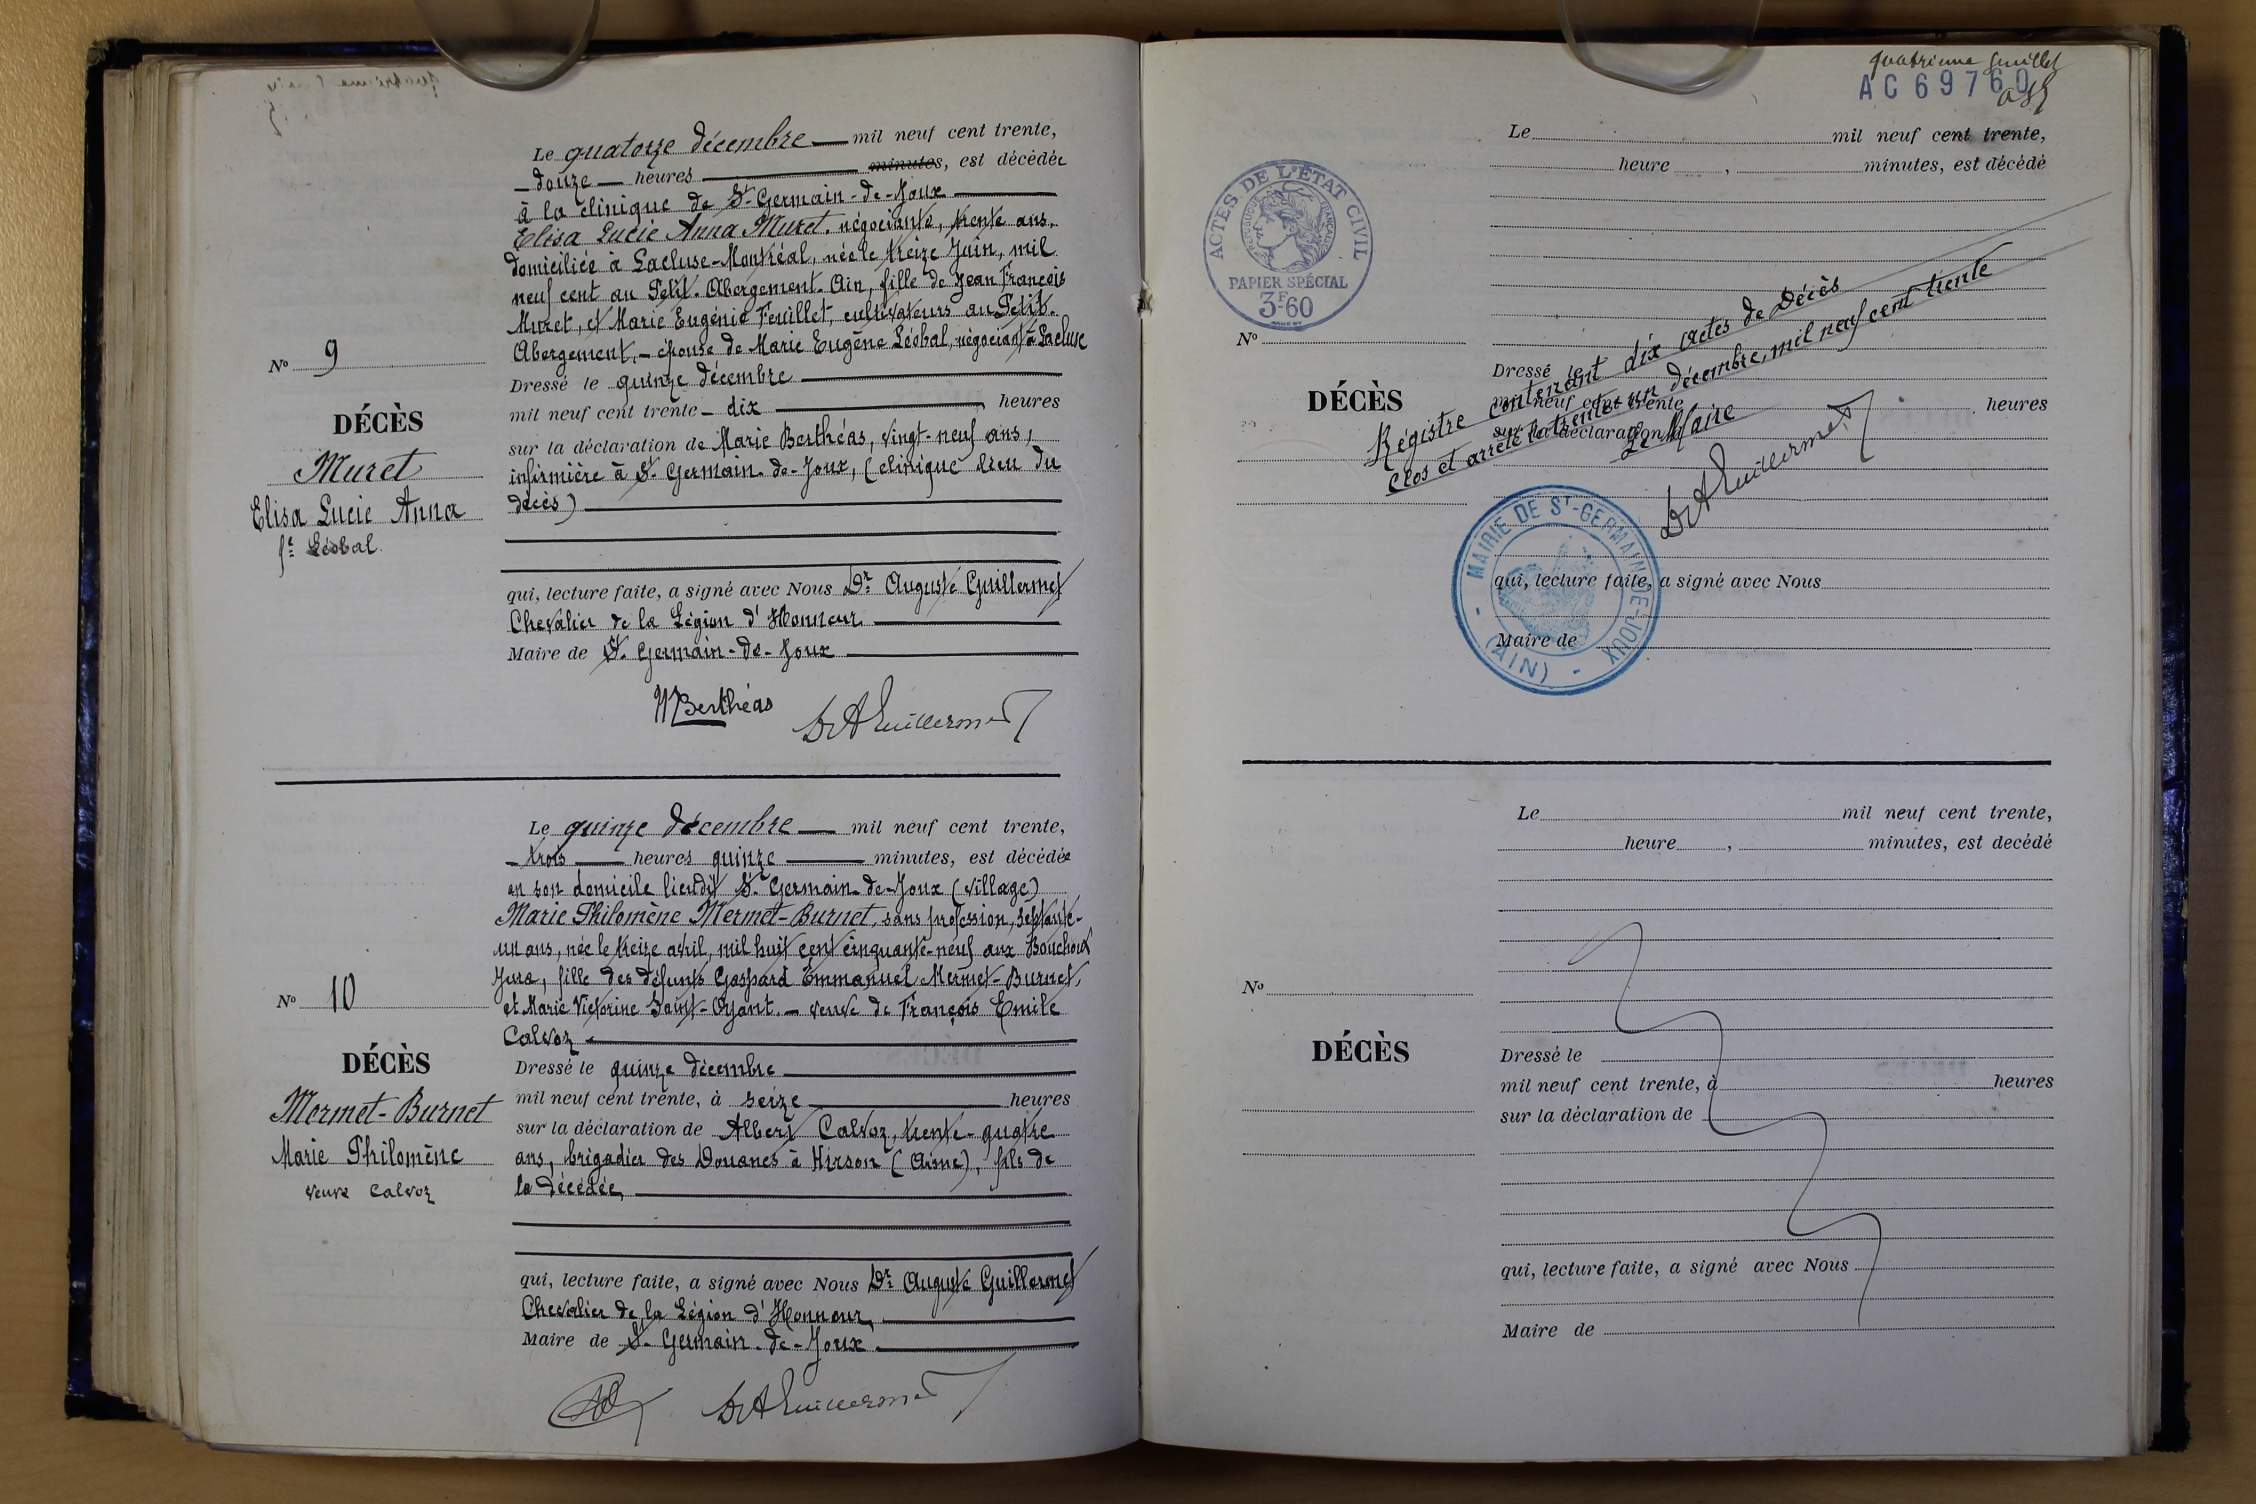 Le quatorze décembre — mil neuf cent trente,
— douze — heures — minutes, est décédée
à la clinique de St Germain-de-Joux
Elisa Lucie Anna Muret, négociante, trente ans,
domiciliée à Lacluse-Montréal, née le treize Juin, mil
neuf cent au Petit-Abergement-Ain, fille de Jean François
Muret, et Marie Eugénie Feuillet, cultivateurs au Petit-
Abergement, — épouse de Marie Eugène Léobal, négociant à Lacluse
Dressé le quinze décembre
mil neuf cent trente — dix — heures
sur la déclaration de Marie Berthéas, vingt-neuf ans,
infirmière à St Germain-de-Joux, (clinique lieu du
décès)
qui, lecture faite, a signé avec Nous Dr Auguste Guillermet
Chevalier de la Légion d'Honneur,
Maire de St Germain-de-Joux
M Berthéas
Dr A Guillermet
No 9
DÉCÈS
Muret
Elisa Lucie Anna
fe Léobal
Le quinze décembre — mil neuf cent trente,
— trois — heures quinze — minutes, est décédée
en son domicile lieudit St Germain-de-Joux (village)
Marie Philomène Mermet-Burnet, sans profession, septante-
un ans, née le treize avril, mil huit cent cinquante-neuf aux Bouchoux
Jura, fille des défunts Gaspard Emmanuel Mermet-Burnet,
et Marie Victorine Saint-Oyant. — veuve de François Emile
Calvoz
Dressé le quinze décembre
mil neuf cent trente, à seize heures
sur la déclaration de Albert Calvoz, trente-quatre
ans, brigadier des Douanes à Hirson (Aisne), fils de
la décédée,
qui, lecture faite, a signé avec Nous Dr Auguste Guillermet
Chevalier de la Légion d'Honneur,
Maire de St Germain-de-Joux
Dr A Guillermet
No 10
DÉCÈS
Mermet-Burnet
Marie Philomène
veuve Calvoz
quatrième feuillet
AC69760
Le mil neuf cent trente,
heure , minutes, est décédé
ACTES DE L'ÉTAT CIVIL
RÉPUBLIQUE FRANÇAISE
PAPIER SPÉCIAL
3F60
No
DÉCÈS
Dressé le
mil neuf cent trente heures
sur la déclaration
Régistre contenant dix actes de Décès
Clos et arrêté le trente-un décembre, mil neuf cent trente
Le Maire
Dr A Guillermet
MAIRIE DE ST-GERMAIN-DE-JOUX
(AIN)
qui, lecture faite, a signé avec Nous
Maire de
Le mil neuf cent trente,
heure , minutes, est decédé
No
DÉCÈS
Dressé le
mil neuf cent trente, à heures
sur la déclaration de
qui, lecture faite, a signé avec Nous
Maire de